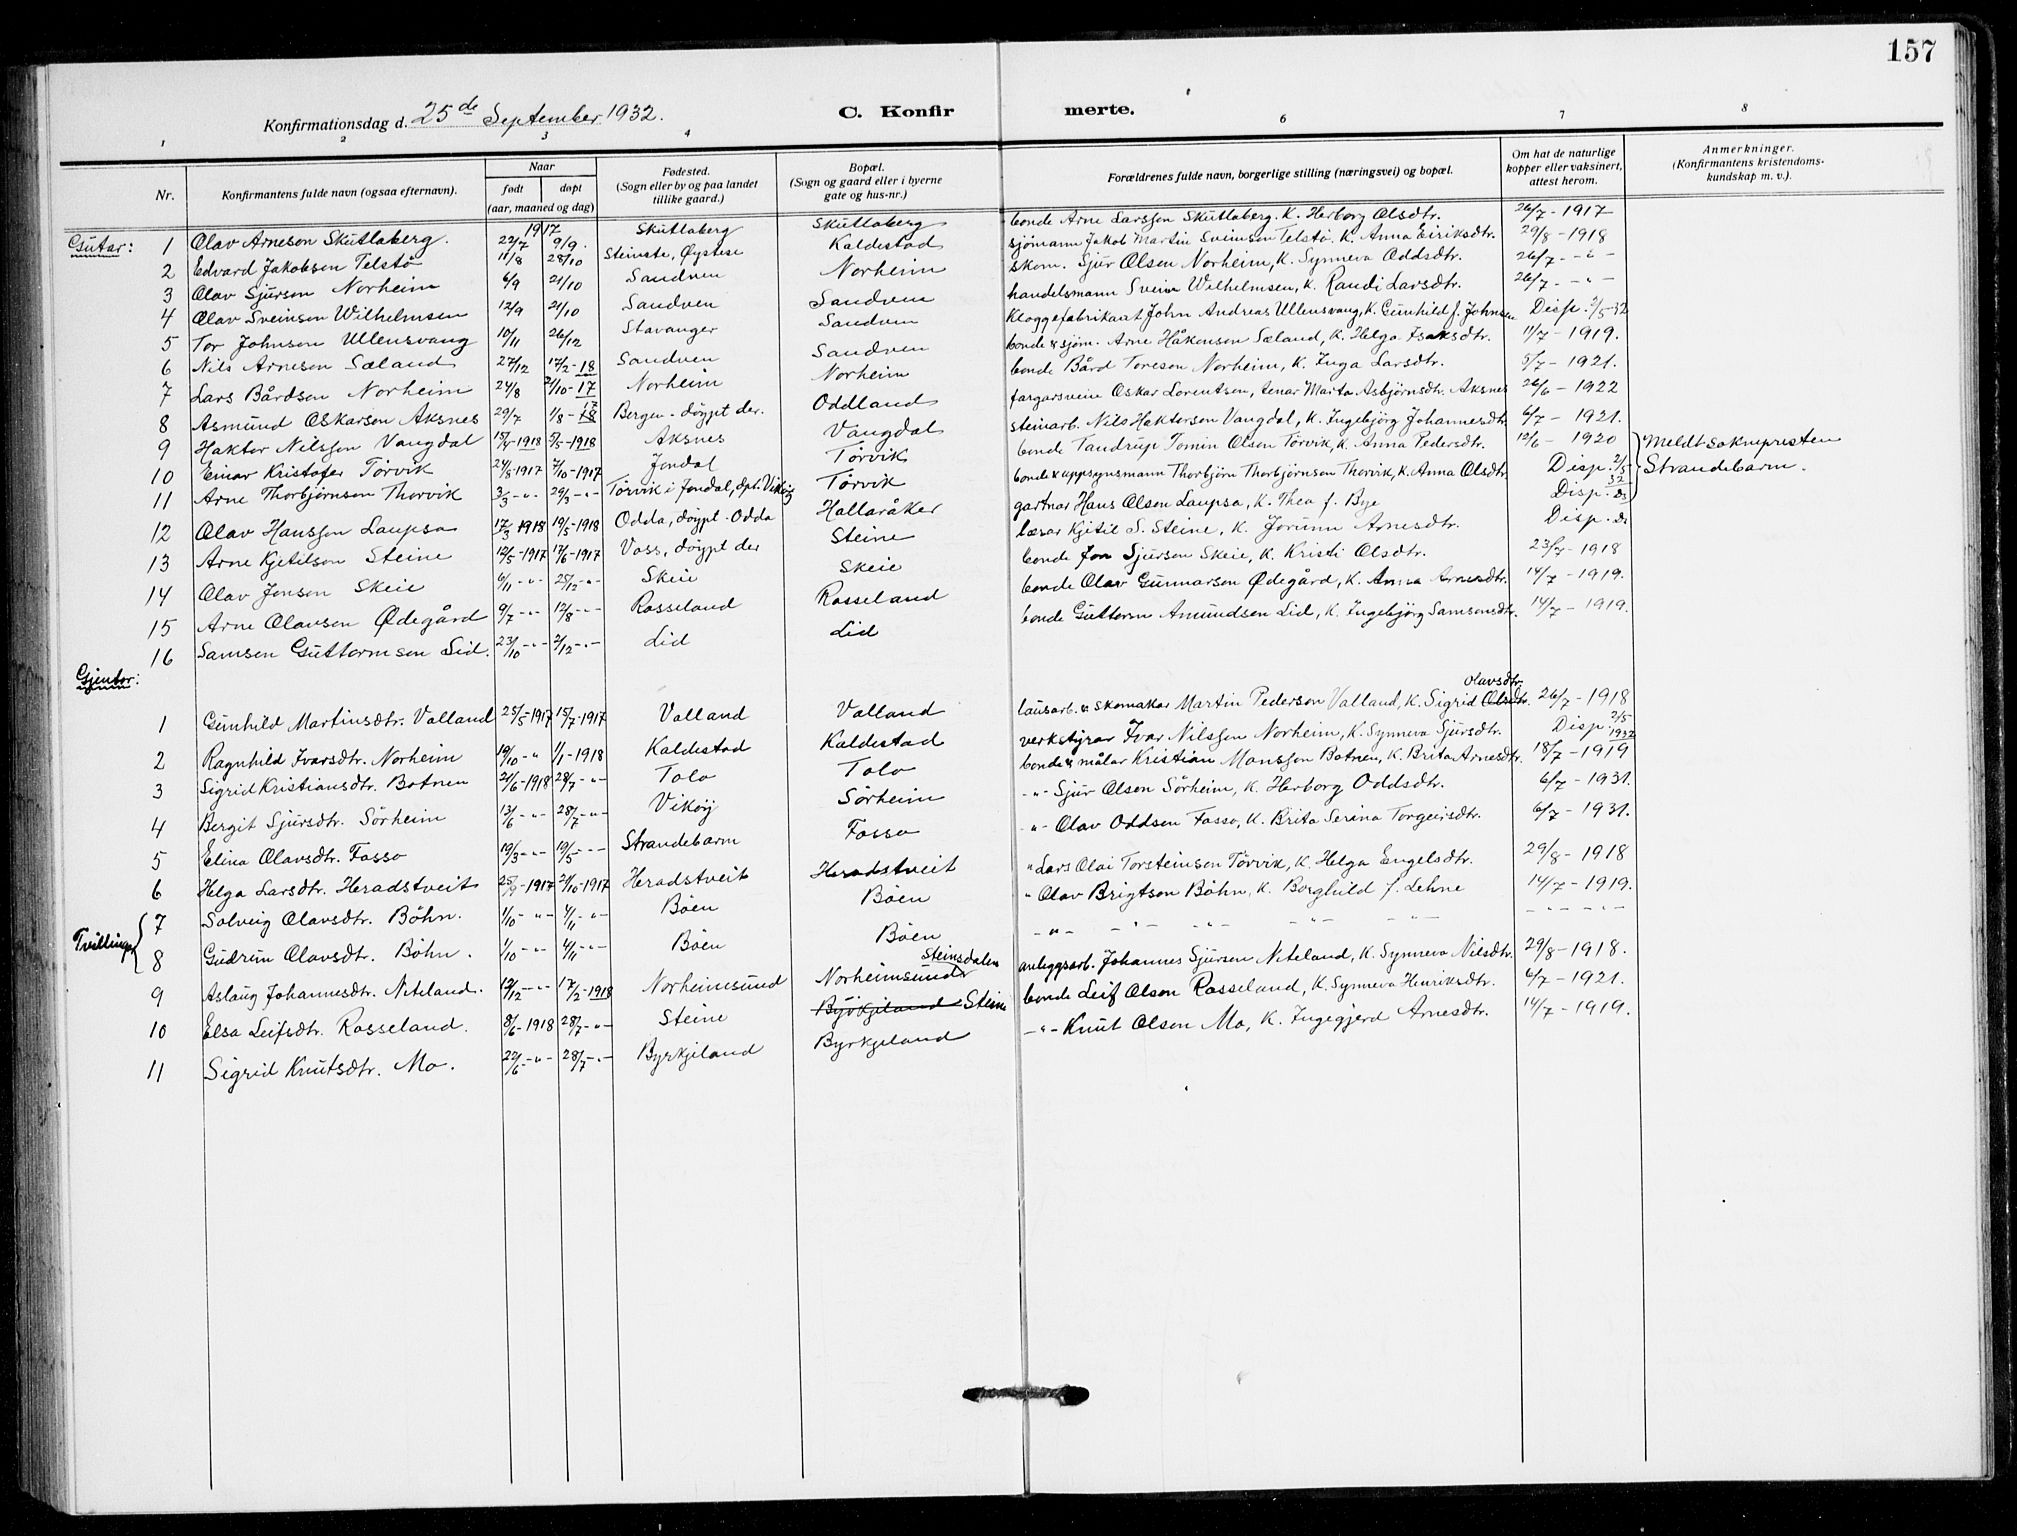 157
Konfirmationsdag d. 25de September 1932. C. Konfirmerte.
1 2 3 4 6 7 8
Nr. Konfirmantens fulde navn (ogsaa efternavn). Naar født døpt (aar, maaned og dag) Fødested. (Sogn eller by og paa landet tillike gaard.) Bopæl. (Sogn og gaard eller i byerne gate og hus-nr.) Forældrenes fulde navn, borgerlige stilling (næringsvei) og bopæl. Om hat de naturlige kopper eller vaksinert, attest herom. Anmerkninger. (Konfirmantens kristendoms-kundskap m. v.).
Gutar: 1 Olav Arneson Skutlaberg. 1917 22/7 9/9. Skutlaberg Skutlaberg bonde Arne Larsson Skutlaberg. K. Herborg Olsdtr. 26/7 - 1917
2 Edvard Jakobsen Telstø 11/8 28/10 Steinstø, Øystese Kaldestad sjömann Jakob Martin Sveinsen Telstø, K. Anna Eiriksdtr. 29/8 - 1918
3 Olav Sjurson Norheim 6/9 21/10 Sandven Norheim skom. Sjur Olsen Norheim, K. Synneva Oddsdtr. 26/7 - " -
4 Olav Sveinson Wilhelmsen 12/9 21/10 Sandven Sandven handelsmann Svein Wilhelmsen, K. Randi Larsdtr. 26/7 - " -
5 Tor Johnson Ullensvang 10/11 26/12 Stavanger Sandven Kloggefabrikant John Andreas Ullensvang, K. Gunhild f. Johnsen Disp. 2/5-32
6 Nils Arneson Sæland 27/12 17/2-18 Sandven Sandven bonde & sjöm. Arne Håkonson Sæland, K. Helga Isaksdtr. 11/7 - 1919.
7 Lars Bårdson Norheim 24/8 21/10-17 Norheim Norheim bonde Bård Toreson Norheim, K. Inga Larsdtr. 5/7 - 1921.
8 Asmund Oskarson Aksnes 29/7 1/8-18 17 Bergen - döypt der. Oddland fargarsvein Oskar Lorentsen, tenar Marta Asbjørnsdtr. Aksnes 26/6 - 1922
9 Haktor Nilsson Vangdal 15/4-1918 5/5-1918 Aksnes Vangdal steinarb. Nils Haktorson Vangdal, K. Ingebjörg Johannesdtr. 6/7 - 1921.
10 Einar Kristofer Törvik 24/8-1917 7/10-1917 Jondal Törvik bonde Tandrup Tomin Olsen Törvik, K. Anna Pedersdtr. 12/6 - 1920 Meldt soknepresten
11 Arne Thorbjörnson Thorvik 3/3 - " - 29/3 - " - Törvik i Jondal, dpt. Viköy Törvik bonde & uppsynsmann Thorbjörn Thorbjörnson Thorvik, K. Anna Olsdtr. Disp. 2/5 32 Strandebarm.
12 Olav Hansson Laupsa 17/3 1918 19/5-1918 Odda, döypt. Odda Hallaråker gartnar Hans Olson Laupsa, K. Thea f. Bye Disp. Do
13 Arne Kjetilson Steine 12/5-1917 17/6-1917 Voss, döypt der Steine lærar Kjetil S. Steine, K. Jorunn Arnesdtr. Disp. Do
14 Olav Jonson Skeie 6/11 - " - 25/12 - " - Skeie Skeie bonde Jon Sjurson Skeie, K. Kristi Olsdtr. 23/7 - 1918
15 Arne Olavson Ødegård 9/7 - " - 12/8 - " - Rosseland Rosseland bonde Olav Gunnarson Ødegård, K. Anna Arnesdtr. 14/7 - 1919.
16 Samson Guttormson Lid. 23/10 - " - 2/12 - " - Lid Lid bonde Guttorm Amundsen Lid, K. Ingebjörg Samsonsdtr. 14/7 - 1919.
Gjentor:
1 Gunhild Martinsdtr. Valland 25/5-1917 15/7-1917 Valland Valland lausarb. & skomakar Martin Pederson Valland, K. Sigrid Olsdtr. Olavsdtr. 26/7 - 1918
2 Ragnhild Ivarsdtr. Norheim 19/10 - " 1/1-1918 Kaldestad Kaldestad verkstyrar Ivar Nilsson Norheim, K. Synneva Sjursdtr. Disp. 2/5 1932
3 Sigrid Kristiansdtr. Botnen 21/6-1918 28/7 - " - Tolo Tolo bonde & målar Kristian Monsson Botnen, K. Brita Arnesdtr. 18/7 - 1919
4 Bergit Sjursdtr. Sörheim 13/6 - " - 28/7 - " - Viköy Sörheim - " - Sjur Olson Sörheim, K. Herborg Oddsdtr. 6/7 - 1931.
5 Elina Olavsdtr. Fosso 19/3 - " - 19/5 - " - Strandebarm Fosso - " - Olav Oddson Fosso, K. Brita Serina Torgeirsdtr. 6/7 - 1931.
6 Helga Larsdtr. Heradstveit 25/9-1917 21/10-1917 Heradstveit Heradstveit " Lars Olai Torsteinson Törvik, K. Helga Engelsdtr. 29/8 - 1918
Tvillingar 7 Solveig Olavsdtr. Böhn. 1/10 - " - 4/11 - " - Böen Böen " Olav Brigtson Böhn, K. Borghild f. Lehne 14/7 - 1919.
8 Gudrun Olavsdtr. Böhn. 1/10 - " - 4/11 - " - Böen Böen - " - - " - - " - - " - - " - - " - - " -
9 Aslaug Johannesdtr. Neteland. 12/12 - " - 17/2-1918 Norheimsund Norheimsund Steinsdalen anleggsarb. Johannes Sjurson Neteland, K. Synneva Nilsdtr. 29/8 - 1918.
10 Elsa Leifsdtr. Rosseland. 8/6-1918 28/7 - " - Steine Byrkjeland Steine bonde Leif Olson Rosseland, K. Synneva Henriksdtr. 6/7 - 1921.
11 Sigrid Knutsdtr. Mo. 22/6 - " - 28/7 - " - Byrkjeland Byrkjeland - " - Knut Olson Mo, K. Ingegjerd Arnesdtr. 14/7 - 1919.